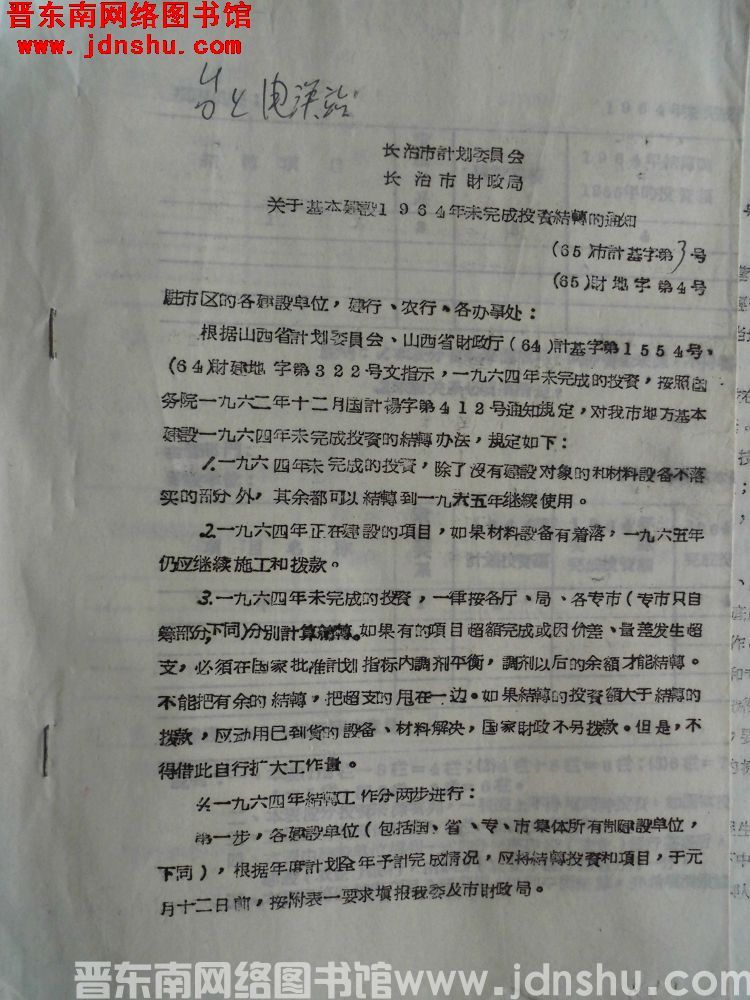 晋东南网络图书馆
www.jdnshu.com
长治市計划委員会
长治市財政局
关于基本建設1964年未完成投資結轉的通知
(65)市計基字第3号
(65)財地字第4号
駐市区的各建設单位，建行、农行、各办事处：
根据山西省計划委員会、山西省財政厅(64)計基字第1554号、
(64)財建地字第322号文指示，一九六四年未完成的投資，按照国
务院一九六二年十二月国計揚字第412号通知規定，对我市地方基本
建設一九六四年未完成投資的結轉办法，規定如下：
1.一九六四年未完成的投資，除了沒有建設对象的和材料設备不落
实的部分外，其余都可以結轉到一九六五年继續使用。
2.一九六四年正在建設的項目，如果材料設备有着落，一九六五年
仍应继續施工和拨款。
3.一九六四年未完成的投資，一律按各厅、局、各专市(专市只自
筹部分，下同)分別計算結轉。如果有的項目超額完成或因价差、量差发生超
支，必須在国家批准計划指标內調剂平衡，調剂以后的余額才能結轉。
不能把有余的結轉，把超支的甩在一边。如果結轉的投資額大于結轉的
拨款，应动用已到貨的設备、材料解决，国家財政不另拨款。但是，不
得借此自行扩大工作量。
4.一九六四年結轉工作分两步进行：
第一步，各建設单位(包括国、省、专、市集体所有制建設单位，
下同)，根据年度計划全年予計完成情况，应将結轉投資和項目，于元
月十二日前，按附表一要求填报我委及市財政局。
晋东南网络图书馆www.jdnshu.com